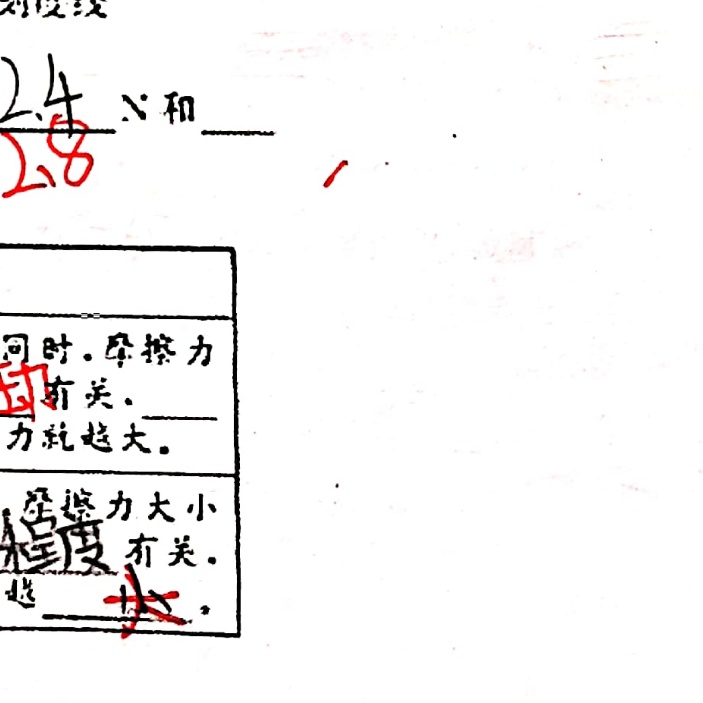 刻度线
2.4 N和
2.8
同时.摩擦力
有关.
力就越大.
摩擦力大小
程度有关.
越 大.